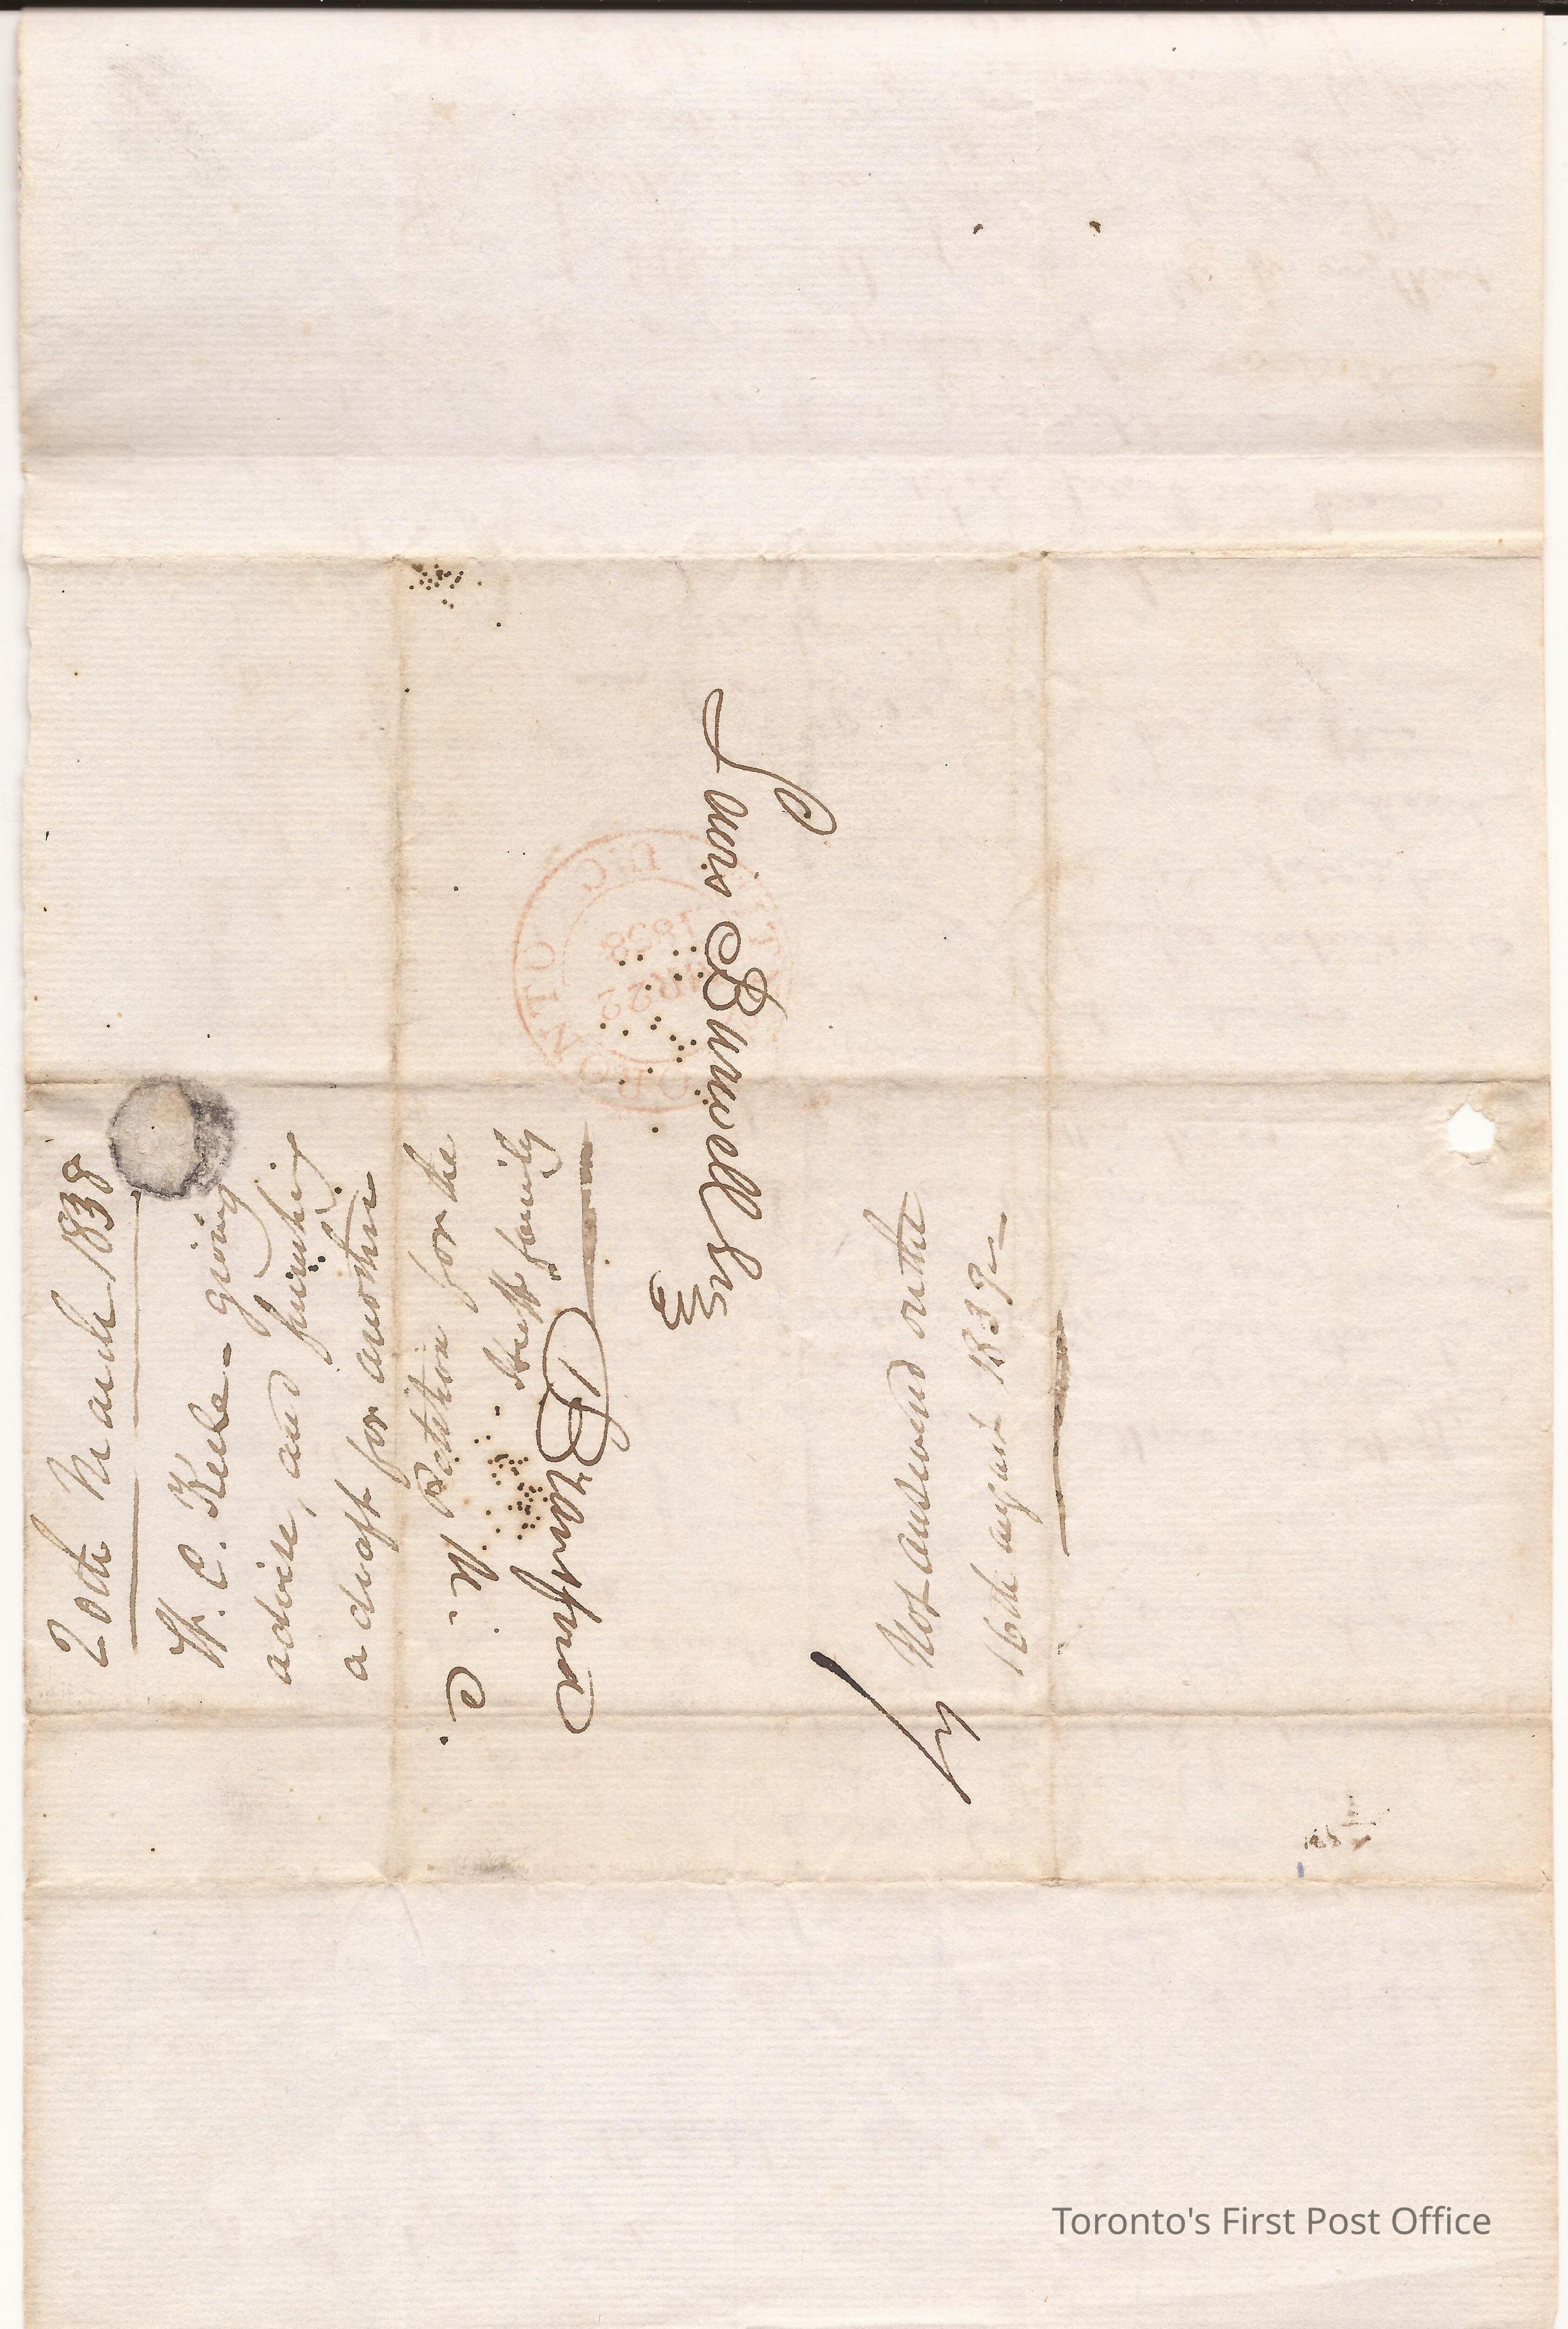 Lewis Burwell Esq
Brantford
U. C.
20th March 1838
W. C. Keele - giving
advice, and furnishing
a draft for another
Petition for the
Huff family
Not answered on the
16th August 1839
TORONTO U.C.
MAR 22
1838
Toronto's First Post Office